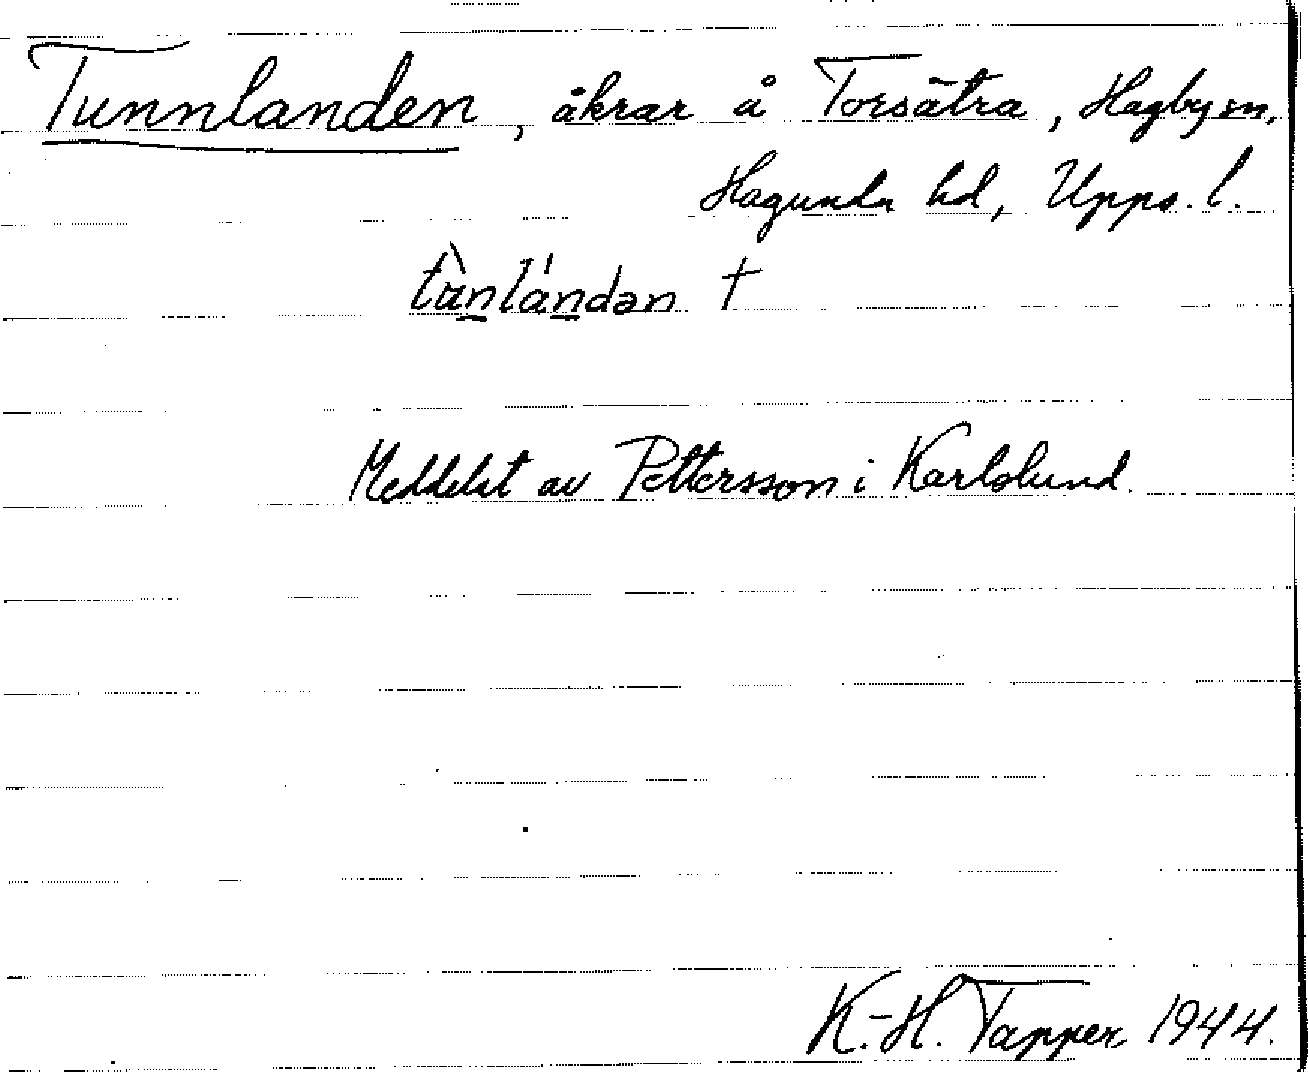 Tunnlanden, åkrar å Torsätra, Hagby sn,
Hagunda hd, Upps. l.
tùnlándən †
Meddelat av Pettersson i Karlslund.
K.-H. Tapper 1944.